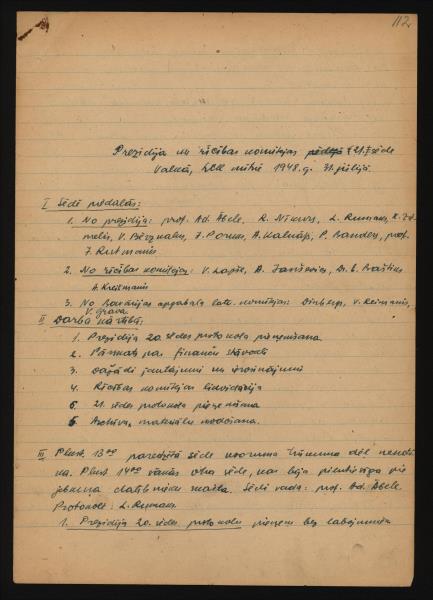 112
Prezidija un rīcības komitejas 21. sēde
Valkā, LCK mītnē 1948.g. 31. jūlijā.
I Sēdē piedalās:
1. No prezidija: prof. Ad. Ābele, R. Nīkurs, L. Rumaks,
V. Bērzkalns, J. Poruks, A. Kalnājs, P. Banders, prof.
J. Rutmanis
2. No rīcības komitejas: V. Lapše, A. Janševics, Dr. B. Braštiņš
A. Kreišmanis
3. No Bavārijas apgabala latv. komitejas: V. Reimanis,
V. Grava
II Darba kārtība:
1. Prezidija 20. sēdes protokola pieņemšana
2. Pārskats par finanču stāvokli
3. Dažādi jautājumi un ierosinājumi
4. Rīcības komitejas likvidācija
5. 21. sēdes protokola pieņemšana
6. Archīva materiālu nodošana.
III Plkst. 13oo paredzētā sēde kvoruma trūkuma dēļ nenotika.
Plkst. 14oo sanāk otra sēde, kas bija pilntiesīga pie
jebkura dalībnieku skaita. Sēdi vada: prof. Ad. Ābele.
Protokolē: L. Rumaks.
1. Prezidija 20. sēdes protokolu pieņem bez labojumiem